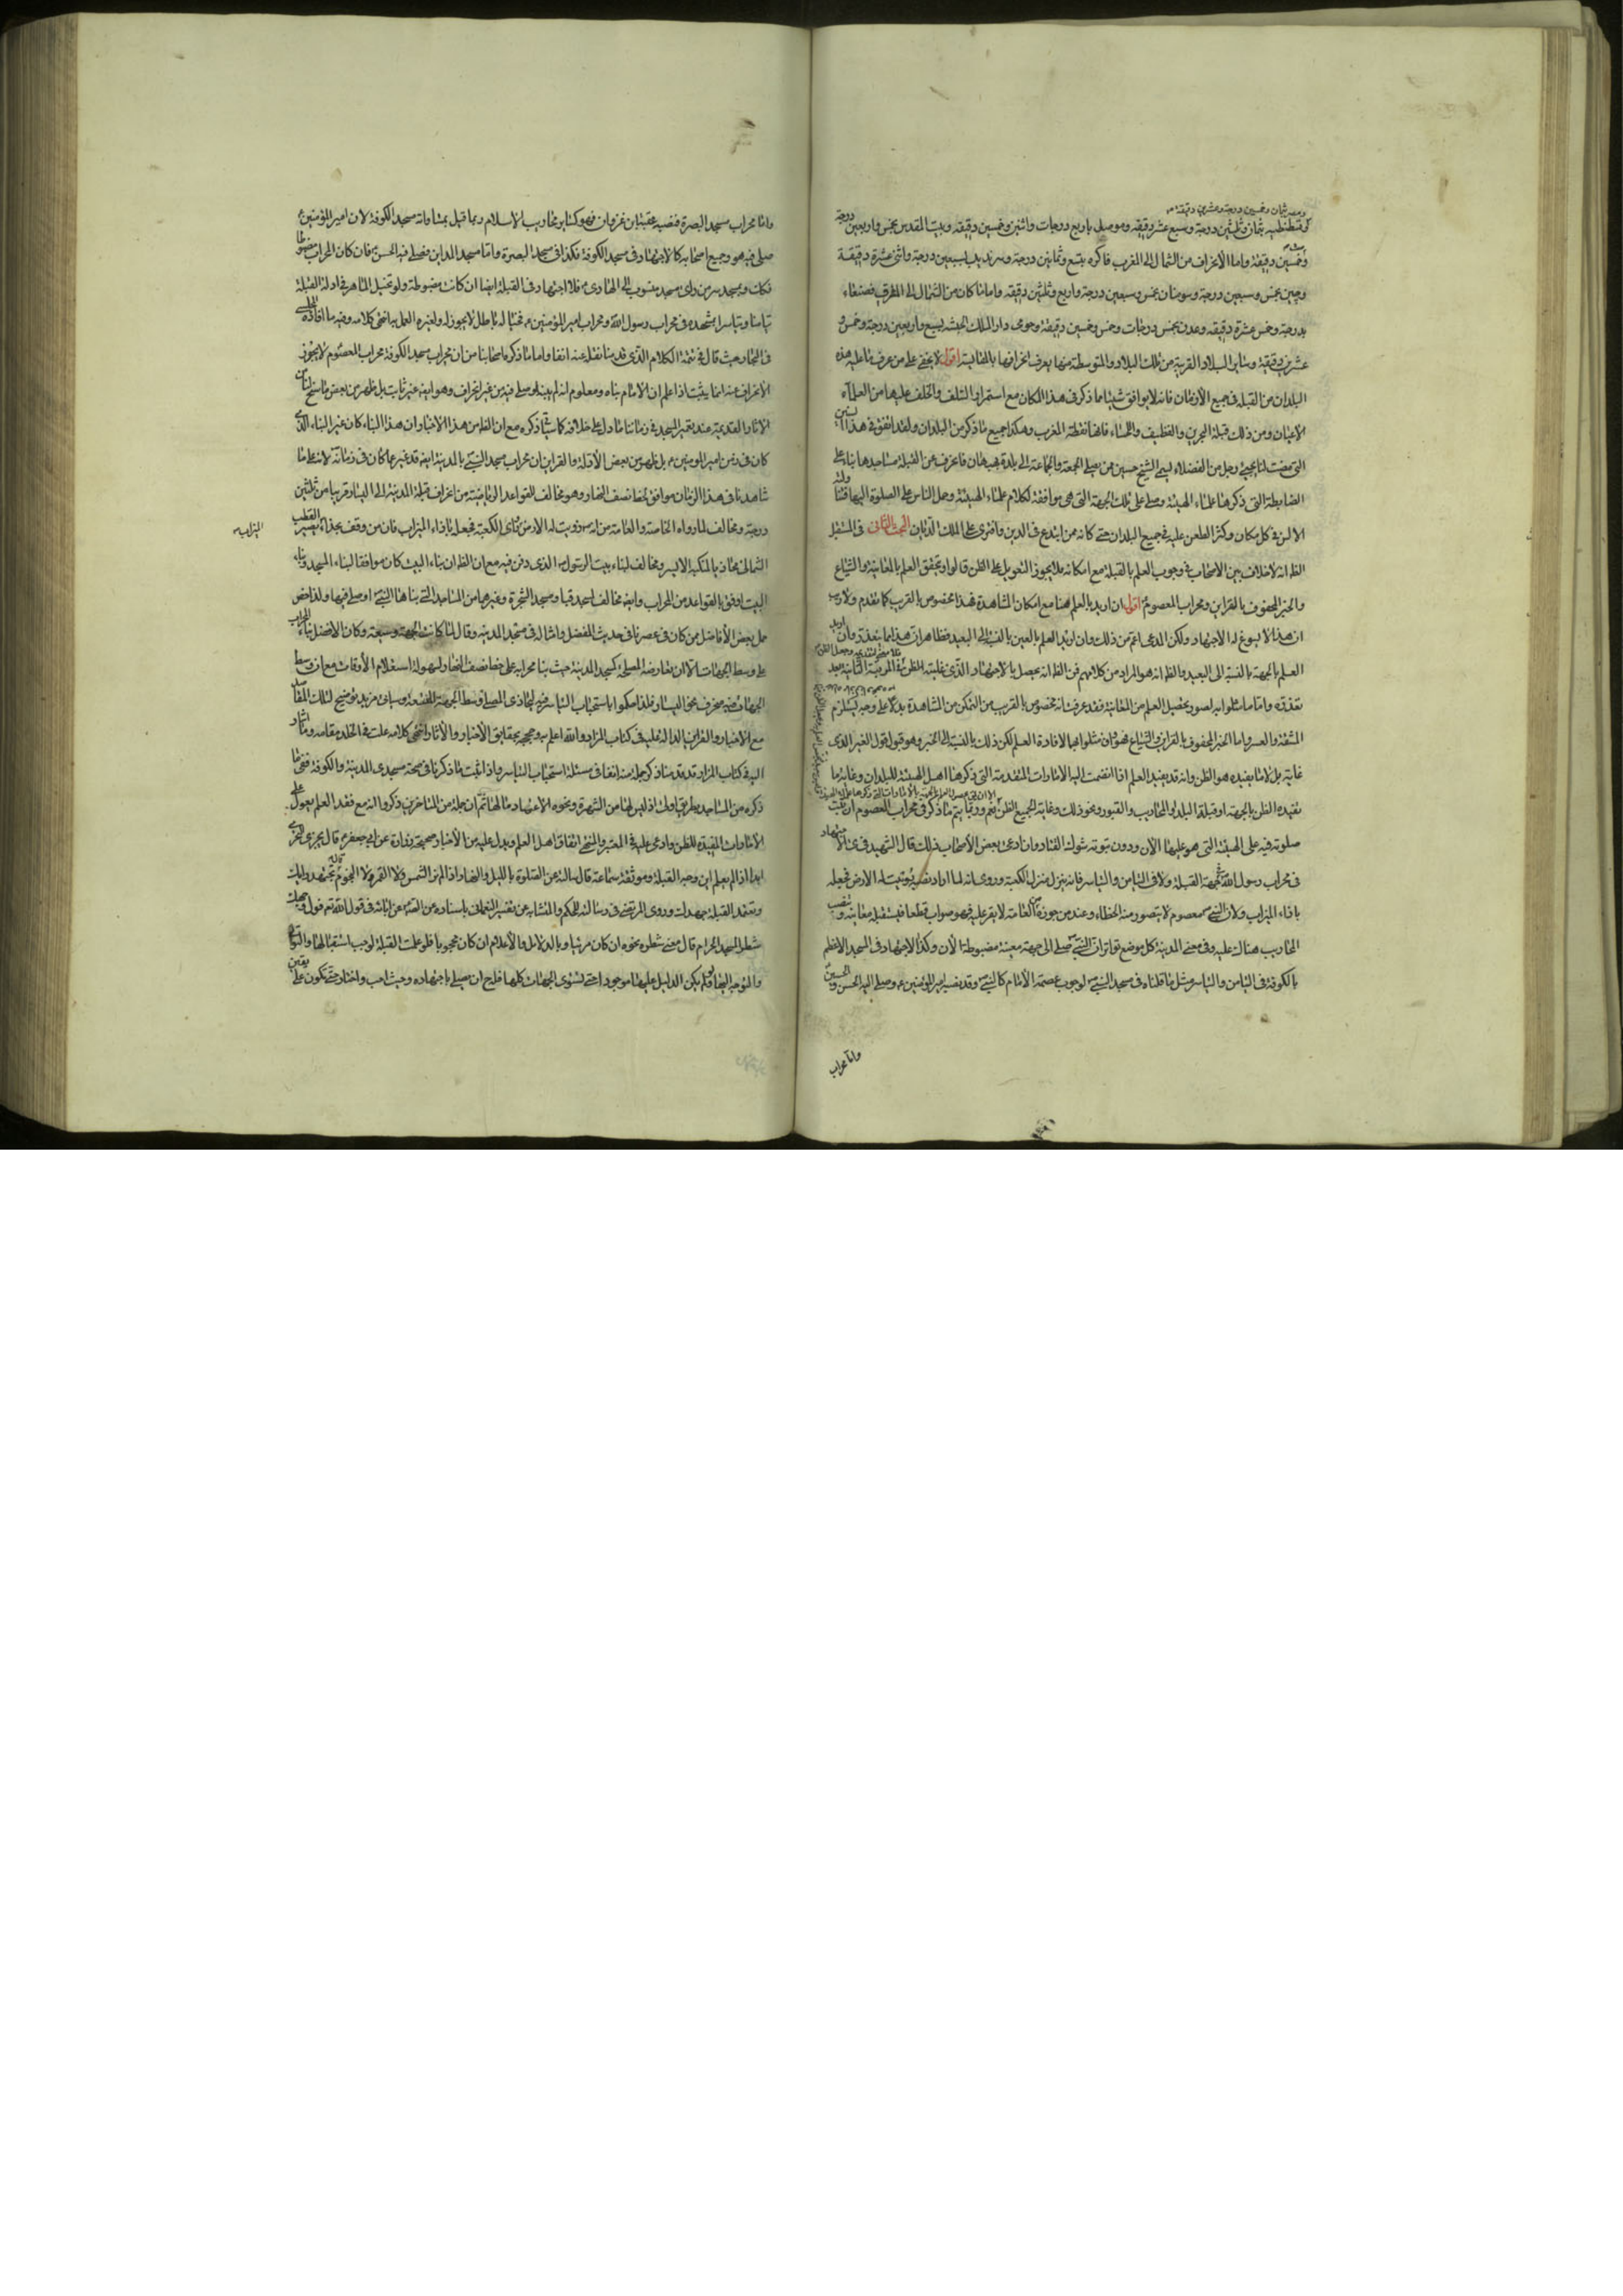 ومصر بثمان وخمسين درجة وعشرين دقيقة
قسطنطنية بثمان وثلثين درجة وسبع عشر دقيقة وموصل باربع درجات واثنين وخمسين دقيقة وبيت المقدس بخمس واربعين درجة
وخمسين دقيقة واما الانحراف من الشمال الى المغرب فاكره بتسع وثمانين درجة وسرنديب بسبعين درجة واثنى عشرة دقيقة
وچين بخمس وسبعين درجة وسومنات بخمس وسبعين درجة واربع وثلثين دقيقة واما ما كان من الشمال الى المشرق فصنعاء
بدرجة وخمس عشرة دقيقة وعدن بخمس درجات وخمس وخمسين دقيقة وجرمى دار الملك الحبشة بسبع واربعين درجة وخمس و
عشرين دقيقة وسائر البلاد القريبة من تلك البلاد والمتوسطة بينها يعرف انحرافها بالمقايسة اقول لا يخفى على من عرف ما عليه هذه
البلدان من القبلة في جميع الأزمان فانه لا يوافق شيئا مما ذكر في هذا المكان مع استمرار السلف والخلف عليها من العلماء
الاعيان ومن ذلك قبلة البحرين والقطيف والاحساء فانها نقطة المغرب وهكذا جميع ما ذكر من البلدان ولقد اتفق في هذا السنين
التي مضت لنا مجيء رجل من الفضلاء يسمى الشيخ حسين ممن يصلي الجمعة والجماعة الى بلدة بهبهان فانحرف عن القبلة مساجدها بناء على
الضابطة التي ذكرها علماء الهيئة وصلى على تلك الجهة التي هي موافقة لكلام علماء الهيئة وحمل الناس على الصلوة اليها
الالسن في كل مكان وكثر الطعن عليه في جميع البلدان حتى كانه ممن ابتدع في الدين وافترى على الملك الديان البحث الثاني في المستقبل
الظ انه لا خلاف بين الاصحاب في وجوب العلم بالقبلة مع امكانه فلا يجوز التعويل على الظن قالوا ويتحقق العلم بالمعاينة والشياع
والخبر المحفوف بالقراين ومحراب المعصوم اقول ان اريد بالعلم هنا مع امكان المشاهدة فهذا مخصوص بالقريب كما تقدم ولا ريب
ان هذا لا يسوغ له الاجتهاد ولكن المدعى اعم من ذلك وان اريد العلم بالعين بالنسبة الى البعيد فظاهر ان هذا مما يتعذر وان اريد
العلم بالجهة بالنسبة الى البعيد والظ انه هو المراد من كلامهم فمن الظ انه يحصل بالاجتهاد الذي غايته الظن في المرتبة الثانية بعد
تعذره واما ما مثلوا به لصور تحصيل العلم من المعاينة فقد عرفت انه مخصوص بالقريب من التمكن من المشاهدة بدلا على وجه يستلزم
المشقة والعسر واما الخبر المحفوف بالقراين والشياع فهو وان مثلوا بهما لافادة العلم لكن ذلك بالنسبة الى الخبر وهو قبول قول الغير الذي
غايته بل لا ما يفيده هو الظن وانه قد يفيد العلم اذا انضمت اليه الامارات المتقدمة التي ذكرها اهل الهيئة للبلدان وغاية ما
تفيده الظن بالجهة او قبلة البلد والمحاريب والقبور ونحو ذلك وغاية الجميع الظن نعم وربما يتم ما ذكر في محراب المعصوم ان ثبت
صلوته فيه على الهيئة التي هو عليها الآن ودون ثبوته شوك القتاد وما ادعى بعض الأصحاب ذلك قال الشهيد في الاجتهاد
في محراب رسول الله في جهة القبلة ولا في التيامن والتياسر فانه ينزل منزلة الكعبة وروي انه لما اراد نصبه زويت له الارض فجعله
بازاء الميزاب ولان النبي معصوم لا يتصور منه الخطاء وعند من جوزه من العامة لا يقر عليه فهو صواب قطعا فيستقبله معاينة وتنصب
المحاريب هناك عليه وفي معنى المدينة كل موضع تواتر ان النبي صلى الى جهة معينة مضبوطة الآن وكذا الاجتهاد في المسجد الاعظم
بالكوفة في التيامن والتياسر مثل ما قلناه في مسجد النبي لوجوب عصمة الأمام كالنبي وقد نصبه امير المؤمنين وصلى اليه الحسن والحسين
واما محراب
واما محراب مسجد البصرة فنصبه عتبة بن غزوان فهو كسائر محاريب الاسلام وربما قيل بمساواته مسجد الكوفة لان امير المؤمنين
صلى فيه هو وجميع اصحابه كالاجتهاد في مسجد الكوفة فكذا في مسجد البصرة واما مسجد المداين فصلى فيه الحسن فان كان المحراب مضبوطا
فكك وبمسجد سر من راى مسجد منسوب الى الهادي فلا اجتهاد في القبلة ايضا ان كانت مضبوطة ولو تخيل الماهر في ادلة القبلة
تيامنا وتياسرا بمشهده في محراب رسول الله ومحراب امير المؤمنين فخياله باطل لا يجوز له ولغيره العمل به انتهى كلامه وفيه ما افاده
في البحار حيث قال في تتمة الكلام الذي قدمنا نقله عنه انفا واما ما ذكره اصحابنا من ان محراب مسجد الكوفة محراب المعصوم لا يجوز
الانحراف عنه انما يثبت اذا علم ان الامام بناه ومعلوم انه لم يبنه او صلى فيه من غير انحراف وهو ايضا غير ثابت بل ظهر من بعض ما سنح لنا من
الاثار القديمة عند تعمير المسجد في زماننا ما دل على خلافه كما سيأتي ذكره مع ان الظ من هذا الاخبار ان هذا البناء كان غير البناء الذي
كان في زمن امير المؤمنين بل ظهر من بعض الادلة والقراين ان محراب مسجد النبي بالمدينة ايضا قد غير عما كان في زمانه لانه على ما
شاهدنا في هذا الزمان موافق لخط نصف النهار وهو مخالف للقواعد الرياضية من انحراف قبلة المدينة الى اليسار قريبا من ثلثين
درجة ومخالف لما رواه الخاصة والعامة من انه زويت له الارض وراى الكعبة فجعله بازاء الميزاب فان من وقف بحذاء الميزاب يصير القطب
الشمالي محاذيا لمنكبه الايسر ومخالف لبناء بيت الرسول الذي دفن فيه مع ان الظ ان بناء البيت كان موافقا لبناء المسجد وبناء
البيت اوفق بالقواعد من المحراب وايضا مخالف لمسجد قبا ومسجد الشجرة وغيرهما من المساجد التي بناها النبي او صلى فيها ولذا خص
حمل بعض الأفاضل ممن كان في عصرنا في حديث المفضل وامثاله في مسجد المدينة وقال لما كانت الجهة وسيعة وكان الافضل بناء المحراب
على وسط الجهات الا ان يعارضه المصلحة كمسجد المدينة حيث بنا محرابه على خط نصف النهار لسهولة استعلام الأوقات مع ان وسط
الجهات فيه منحرف نحو اليسار فلذا حكموا باستحباب التياسر فيه ليحاذي المصلي وسط الجهة المتسعة وسياتي مزيد توضيح لتلك المقاصد
مع الاخبار والقراين الدالة عليه في كتاب المزار والله اعلم به وحججه بحقايق الأخبار والآثار انتهى كلامه علت في الخلد مقامه وما اشار
اليه في كتاب المزار قد قدمنا ذكر جملة منه انفا في مسئلة استحباب التياسر واذا ثبت ما ذكرنا في صحة مسجدي المدينة والكوفة ففي ما
ذكره من المساجد بطريق اولى اذ ليس لها من الشهرة ونحوه الاعتماد ما لها ثم ان جملة من المتاخرين ذكروا انه مع فقد العلم يعول على
الامارات المفيدة للظن وادعى عليه في المعتبر والمنتهى اتفاق اهل العلم ويدل عليه من الأخبار صحيحة زرارة عن ابي جعفر قال يجزي التحري
ابدا اذا لم يعلم اين وجه القبلة وموثقة سماعة قال سالته عن الصلوة بالليل والنهار اذا لم تر الشمس ولا القمر ولا النجوم قال تجتهد رايك
وتعمد القبلة جهدك وروى المرتضى في رسالة المحكم والمتشابه عن تفسير النعماني باسناده عن الصادق عن ابائه في قول الله تع فول وجهك
شطر المسجد الحرام قال معنى شطره نحوه ان كان مرئيا وبالدلايل والأعلام ان كان محجوبا فلو علمت القبلة لوجب استقبالها والتولي
والتوجه اليها ولو لم يكن الدليل عليها موجودا حتى تستوي الجهات كلها فله ح ان يصلي باجتهاده وحيث احب واختار حتى تكون على يقين
الميزاب